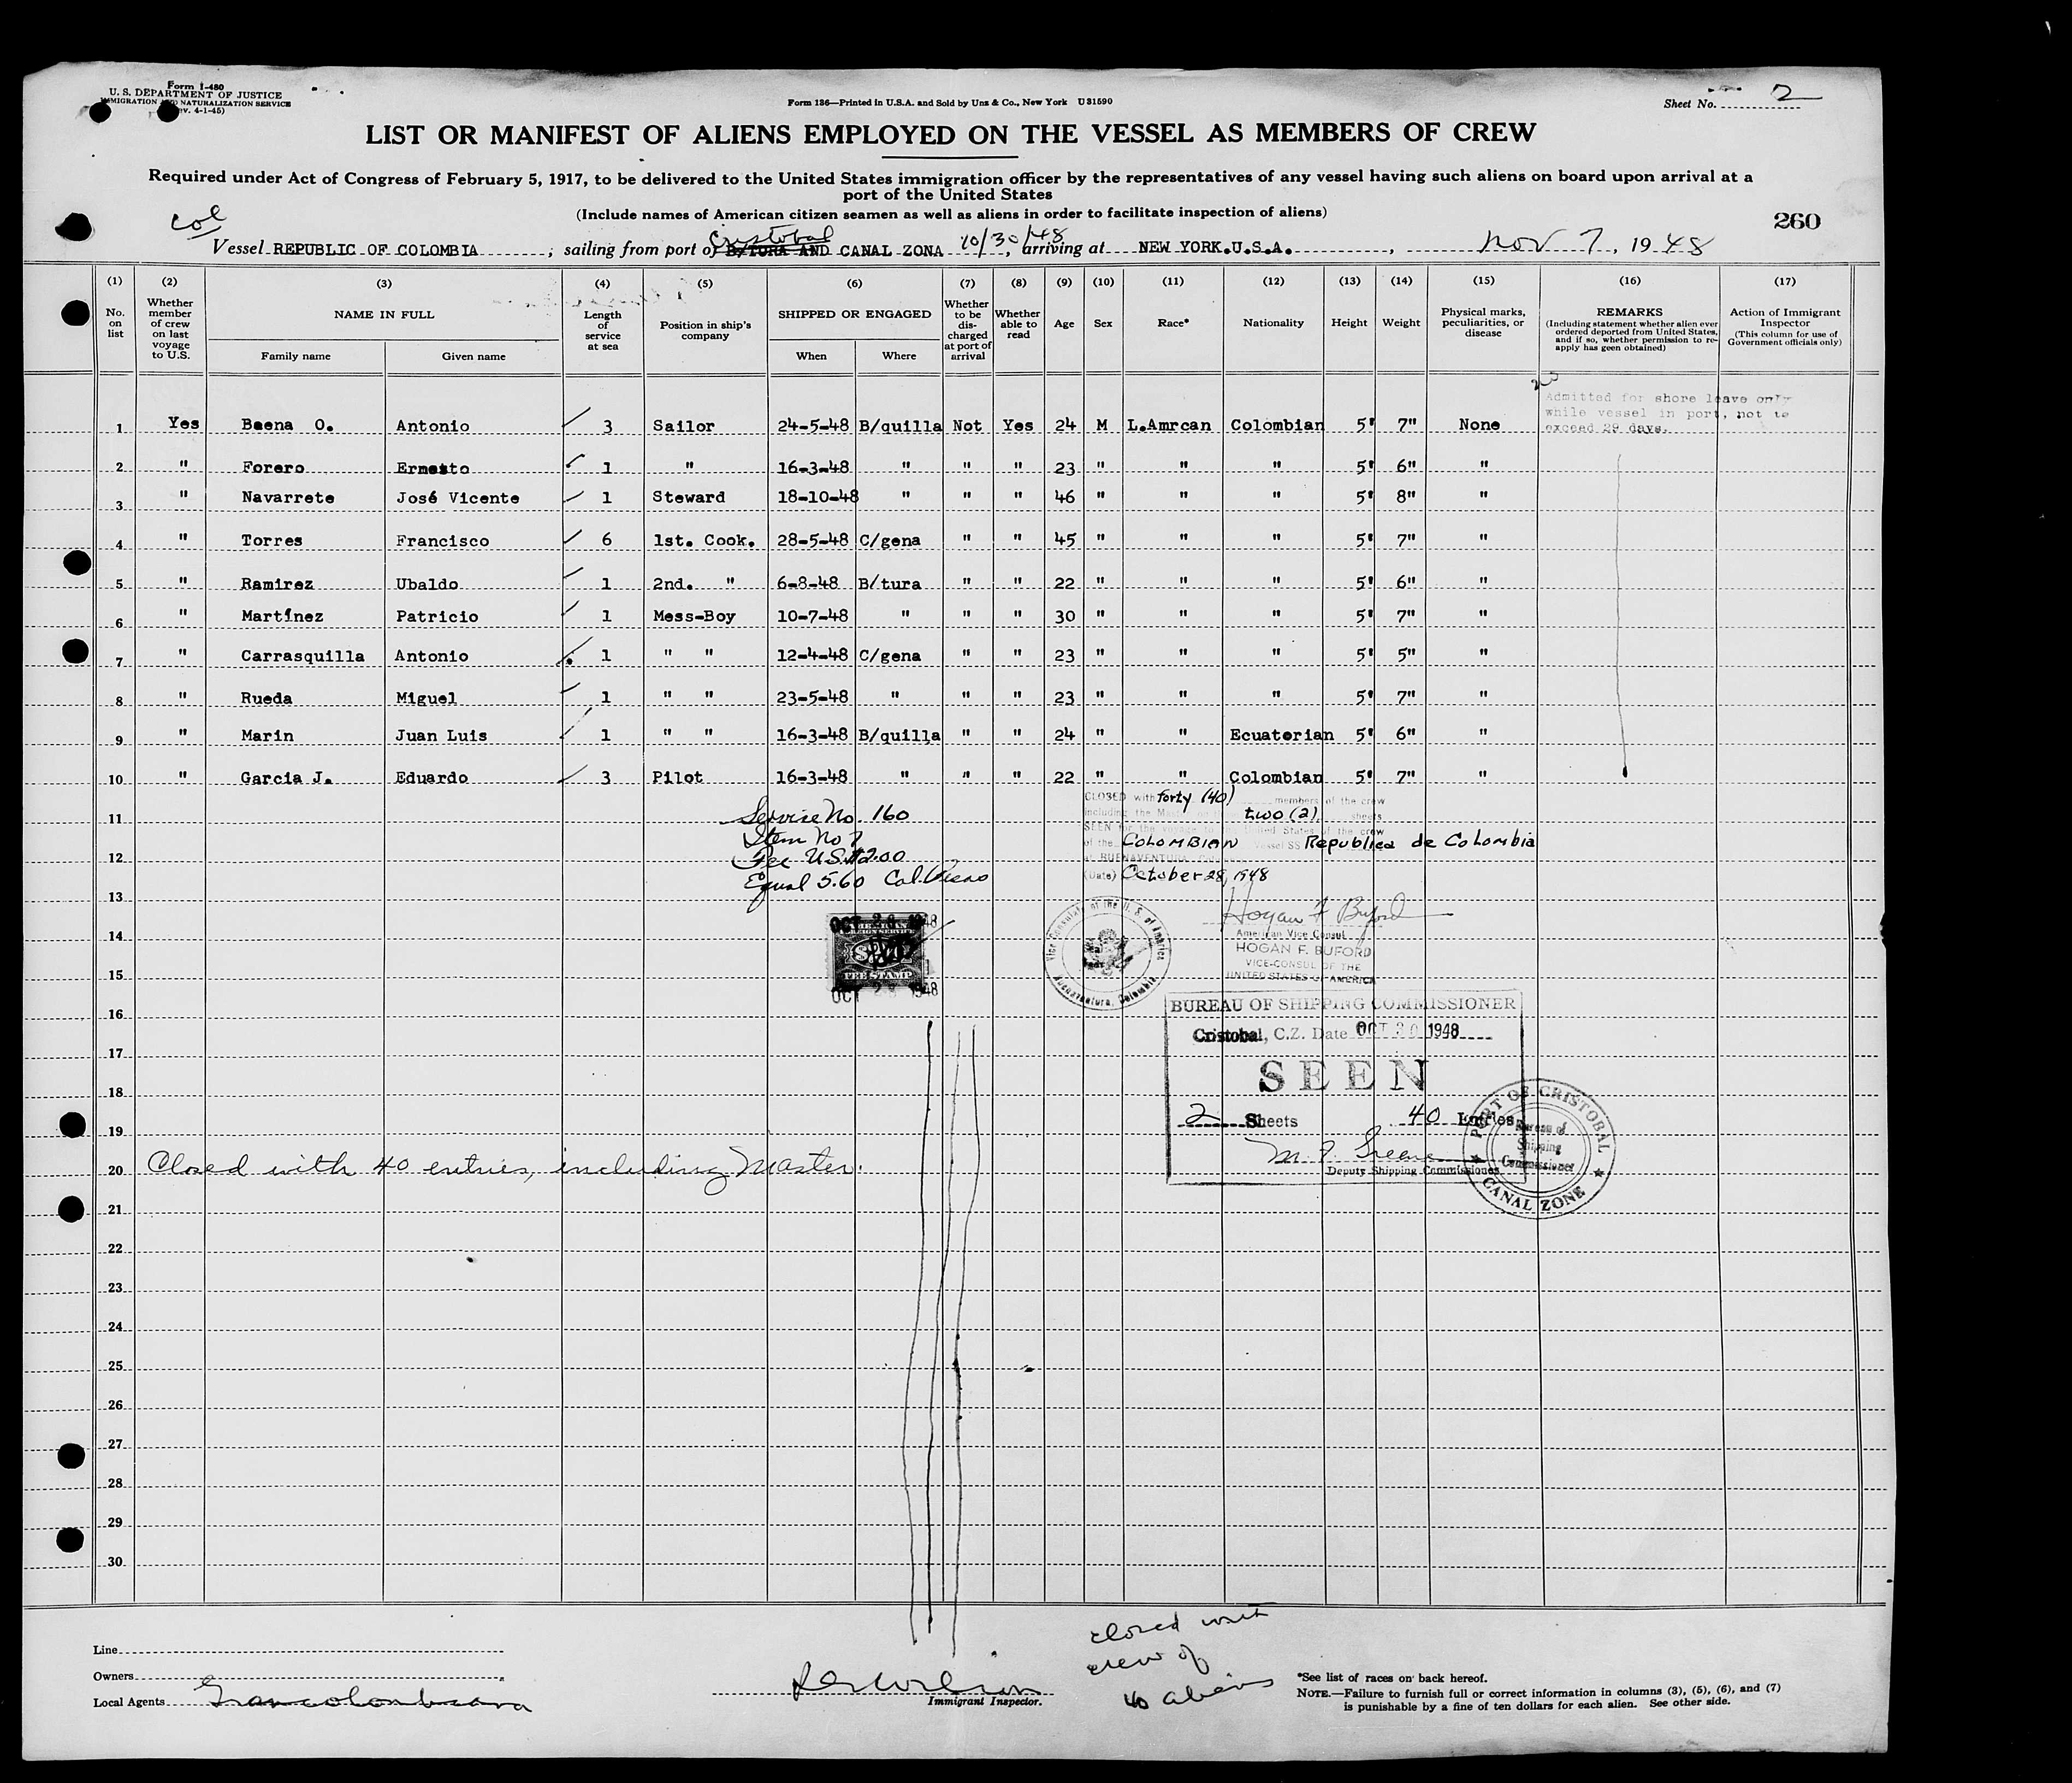 Form I-480
U. S. DEPARTMENT OF JUSTICE
IMMIGRATION AND NATURALIZATION SERVICE
(Rev. 4-1-45)
Form 136—Printed in U.S.A. and Sold by Unz & Co., New York U31590
Sheet No. 2
LIST OR MANIFEST OF ALIENS EMPLOYED ON THE VESSEL AS MEMBERS OF CREW
Required under Act of Congress of February 5, 1917, to be delivered to the United States immigration officer by the representatives of any vessel having such aliens on board upon arrival at a
port of the United States
(Include names of American citizen seamen as well as aliens in order to facilitate inspection of aliens)
260
Col
Cristobal
Vessel REPUBLIC OF COLOMBIA ; sailing from port of B/TURA AND CANAL ZONA 10/30/48, arriving at NEW YORK.U.S.A. , Nov 7, 1948
(1) (2) (3) (4) (5) (6) (7) (8) (9) (10) (11) (12) (13) (14) (15) (16) (17)
No. on list
Whether member of crew on last voyage to U.S.
NAME IN FULL
Family name Given name
Length of service at sea
Position in ship's company
SHIPPED OR ENGAGED
When Where
Whether to be discharged at port of arrival
Whether able to read
Age
Sex
Race*
Nationality
Height
Weight
Physical marks, peculiarities, or disease
REMARKS
(Including statement whether alien ever ordered deported from United States, and if so, whether permission to re-apply has geen obtained)
Action of Immigrant Inspector
(This column for use of Government officials only)
no
Admitted for shore leave only
while vessel in port, not to
exceed 29 days.
1 Yes Baena O. Antonio 3 Sailor 24-5-48 B/quilla Not Yes 24 M L.Amrcan Colombian 5' 7" None
2 " Forero Ernesto 1 " 16-3-48 " " " 23 " " " 5' 6" "
3 " Navarrete José Vicente 1 Steward 18-10-48 " " " 46 " " " 5' 8" "
4 " Torres Francisco 6 1st. Cook. 28-5-48 C/gena " " 45 " " " 5' 7" "
5 " Ramirez Ubaldo 1 2nd. " 6-8-48 B/tura " " 22 " " " 5' 6" "
6 " Martínez Patricio 1 Mess-Boy 10-7-48 " " " 30 " " " 5' 7" "
7 " Carrasquilla Antonio 1 " " 12-4-48 C/gena " " 23 " " " 5' 5" "
8 " Rueda Miguel 1 " " 23-5-48 " " " 23 " " " 5' 7" "
9 " Marin Juan Luis 1 " " 16-3-48 B/quilla " " 24 " " Ecuatorian 5' 6" "
10 " Garcia J. Eduardo 3 Pilot 16-3-48 " " " 22 " " Colombian 5' 7" "
CLOSED with forty (40) members of the crew
including the Master two (2) sheets
SEEN for the voyage to the United States of the crew
of the COLOMBIAN Vessel SS Republica de Colombia
at BUENAVENTURA, Colombia
(Date) October 28, 1948
Service No. 160
Item No 7
Fee US.$2.00
Equal 5.60 Col. Pesos
11
12
13
14
15
16
17
18
19
20
21
22
23
24
25
26
27
28
29
30
OCT 28 1948
AMERICAN
FOREIGN SERVICE
FEE STAMP
OCT 28 1948
Vice Consulate of the U. S. of America
Buenaventura, Colombia
Hogan F Buford
American Vice Consul
HOGAN F. BUFORD
VICE-CONSUL OF THE
UNITED STATES OF AMERICA
BUREAU OF SHIPPING COMMISSIONER
Cristobal, C.Z. Date OCT 30 1948
SEEN
2 Sheets 40 Entries
M. F. Greene
Deputy Shipping Commissioner
PORT OF CRISTOBAL
Bureau of
Shipping
Commissioner
CANAL ZONE
Closed with 40 entries, including Master.
Line
Owners
Local Agents Grancolombiana
Immigrant Inspector.
closed with
crew of
40 aliens
*See list of races on back hereof.
NOTE.—Failure to furnish full or correct information in columns (3), (5), (6), and (7)
is punishable by a fine of ten dollars for each alien. See other side.